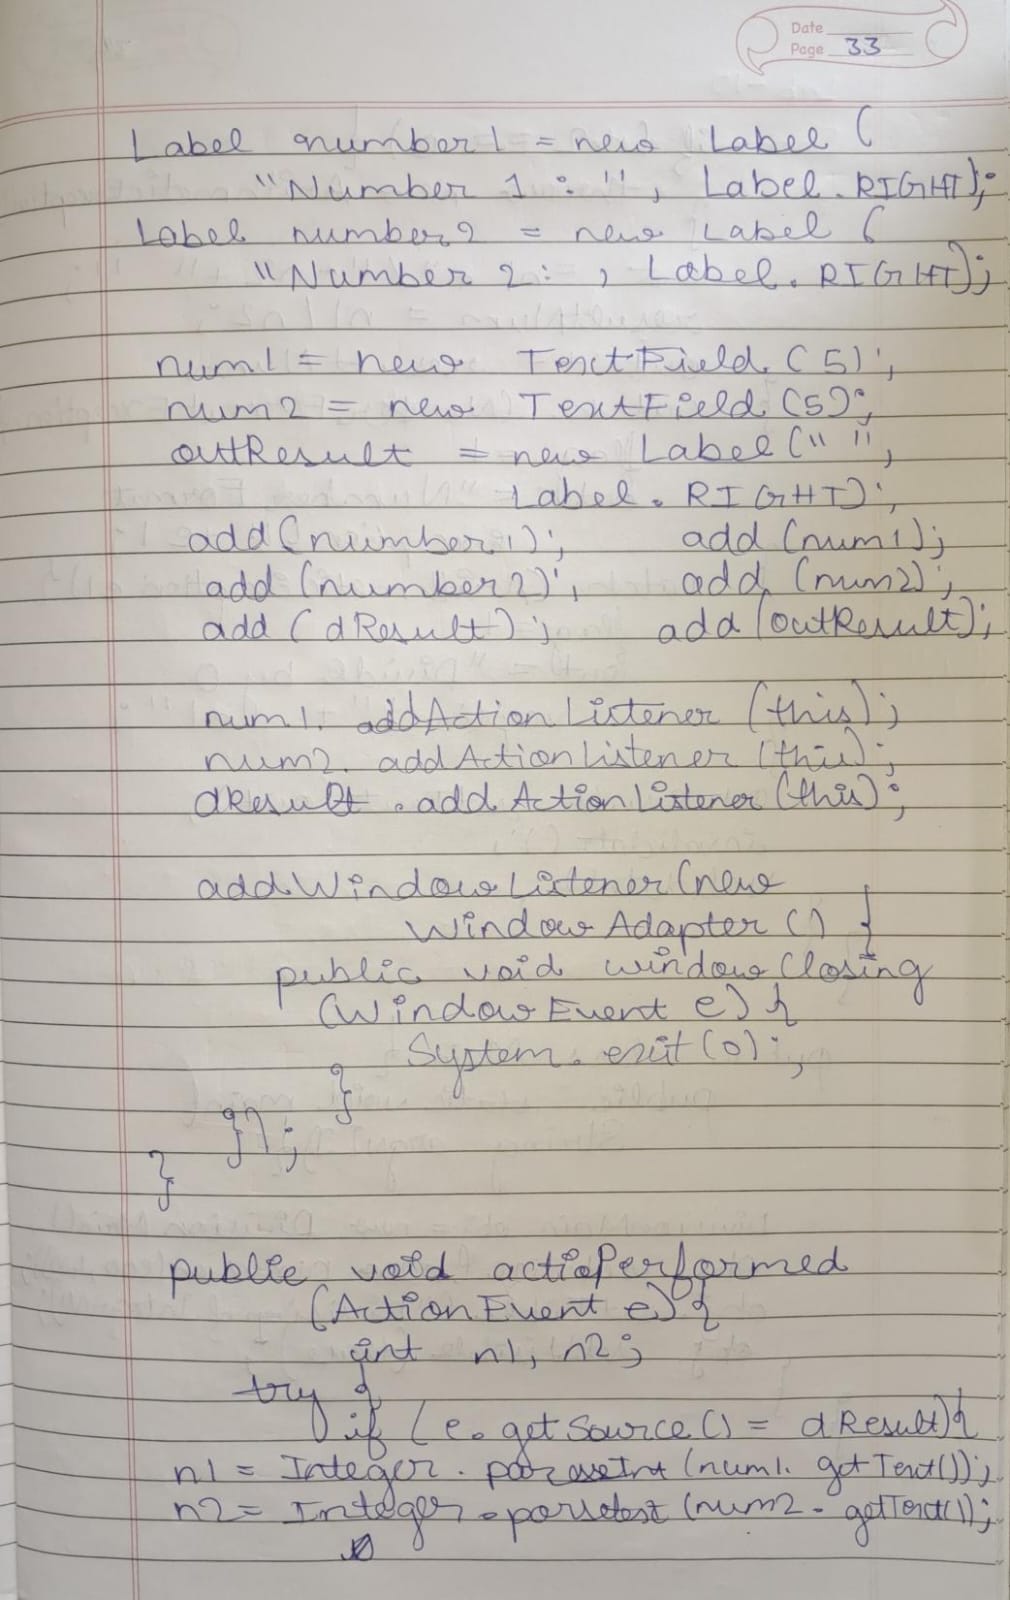 Date
Page 33
Label number1 = new Label (
"Number 1 : ", Label.RIGHT);
Label number2 = new Label (
"Number 2 : , Label.RIGHT);
num1 = new TextField (5);
num2 = new TextField (5);
outResult = new Label (" ",
Label.RIGHT);
add (number1); add (num1);
add (number2); add (num2);
add (dResult); add (outResult);
num1. addActionListener (this);
num2. addActionListener (this);
dResult . addActionListener (this);
addWindowListener (new
WindowAdapter () {
public void windowClosing
(WindowEvent e) {
System. exit (0);
}
});
}
public void actioPerformed
(ActionEvent e) {
int n1, n2;
try {
if (e. getSource () = dResult) {
n1 = Integer . (num1. getText());
n2 = Integer . (num2. getText());